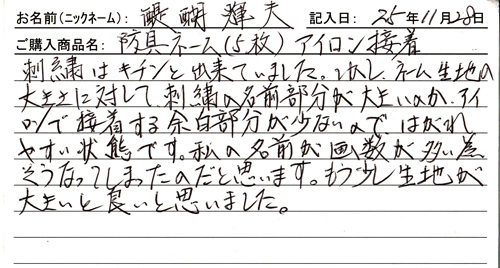 お名前(ニックネーム): 醍醐 輝夫 記入日: 25年11月28日
ご購入商品名: 防具ネーム(5枚)アイロン接着
刺繍はキチンと出来ていました。しかし、ネーム生地の
大きさに対して刺繍の名前部分が大きいのか、アイ
ロンで接着する余白部分が少ないのではがれ
やすい状態です。私の名前が画数が多い為
そうなってしまったのだと思います。もう少し生地が
大きいと良いと思いました。